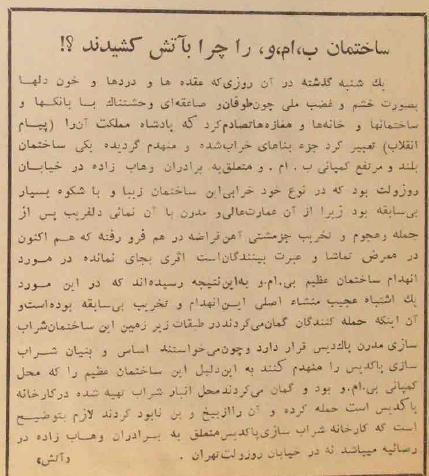 ساختمان ب،ام،و، را چرا بآتش کشیدند ؟!
یك شنبه گذشته در آن روزی‌که عقده ها و دردها و خون دلها
بصورت خشم و غضب ملی چون‌طوفان‌و صاعقه‌ای وحشتناك با بانکها و
ساختمانها و خانه‌ها و مغازه‌هاتصادم‌کرد که پادشاه مملکت آن‌را (پیام
انقلاب) تعبیر کرد جزء بناهای خراب‌شده و منهدم گردیده یکی ساختمان
بلند و مرتفع کمپانی ب . ام . و متعلق‌به برادران وهاب زاده در خیابان
روزولت بود که در نوع خود خرابی‌این ساختمان زیبا و با شکوه بسیار
بی‌سابقه بود زیرا از آن عمارت‌عالی‌و مدرن با آن نمائی دلفریب پس از
حمله وهجوم و تخریب جزمشتی آهن‌قراضه در هم فرو رفته که هم اکنون
در معرض تماشا و عبرت بینندگان‌است اثری بجای نمانده در مورد
انهدام ساختمان عظیم بی.ام.و به‌این‌نتیجه رسیده‌اند که در این مورد
یك اشتباه عجیب منشاء اصلی این‌انهدام و تخریب بی‌سابقه بوده‌است‌و
آن اینکه حمله کنندگان گمان‌می‌کردنددر طبقات زیر زمین این ساختمان‌شراب
سازی مدرن پاك‌دیس قرار دارد وچون‌می‌خواستند اساس و بنیان شراب
سازی پاکدیس را منهدم کنند به این‌دلیل این ساختمان عظیم را که محل
کمپانی بی.ام.و بود و گمان می‌کردندمحل انبار شراب تهیه شده درکارخانه
پاکدیس است حمله کرده و آن راازبیخ و بن نابود کردند لازم بتوضیح
است که کارخانه شراب سازی‌پاکدیس‌متعلق به برادران وهاب زاده در
رضائیه میباشد نه در خیابان روزولت‌تهران .
«آتش»